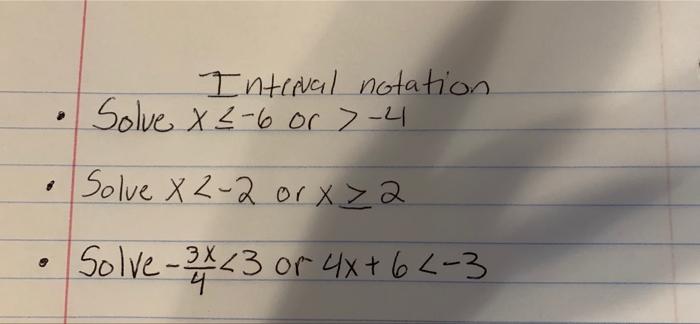 Interval notation
• Solve x ≤ -6 or > -4
• Solve x < -2 or x ≥ 2
• Solve -3x/4 < 3 or 4x + 6 < -3